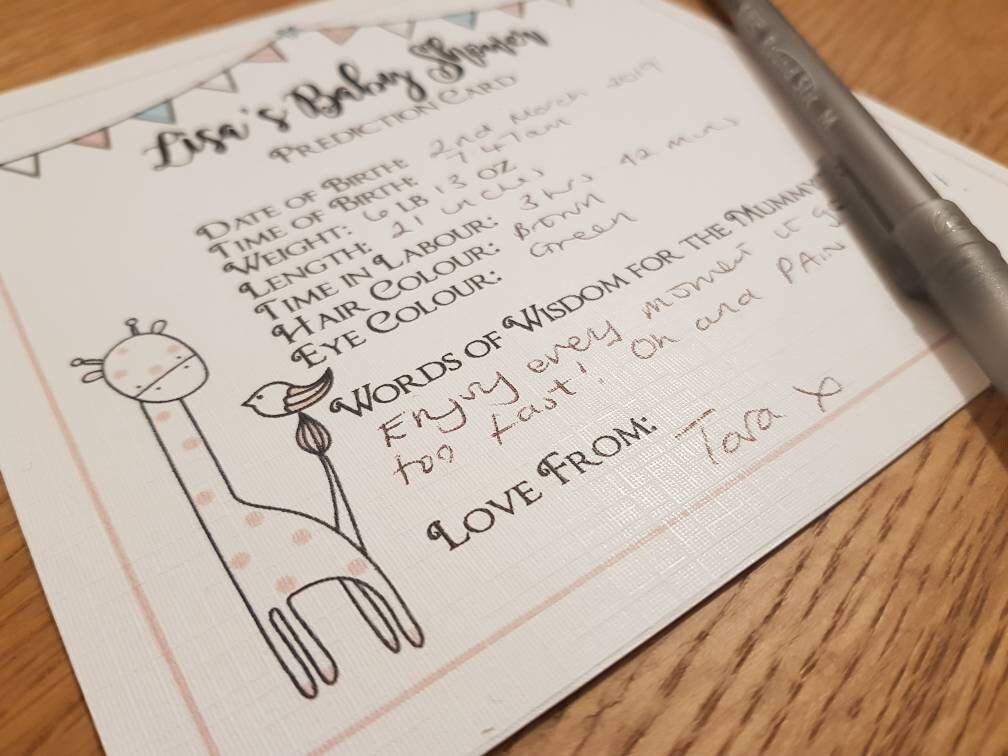 Lisa's Baby Shower
PREDICTION CARD
DATE OF BIRTH: 2nd March 2019
TIME OF BIRTH: 7 47am
WEIGHT: 6 LB 13 OZ
LENGTH: 21 inches
TIME IN LABOUR: 3 hrs 42 mins
HAIR COLOUR: Brown
EYE COLOUR: Green
WORDS OF WISDOM FOR THE MUMMY
Enjoy every moment it
too fast! Oh and PAIN
LOVE FROM: Tara x